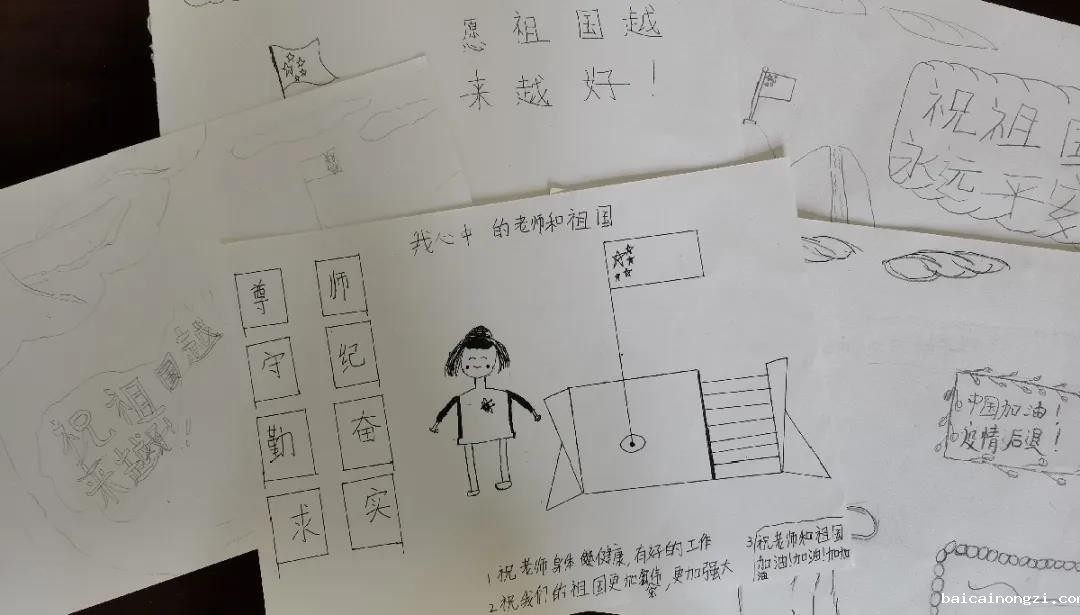 愿祖国越
来越好！
祝祖国
永远平安
我心中的老师和祖国
尊师
守纪
勤奋
求实
祝祖国越
来越!!
中国加油！
疫情后退！
1 祝老师身体健康,有好的工作
2 祝我们的祖国更加,更加强大
3 祝老师和祖国
加油!加油!加加
油
baicainongzi.com